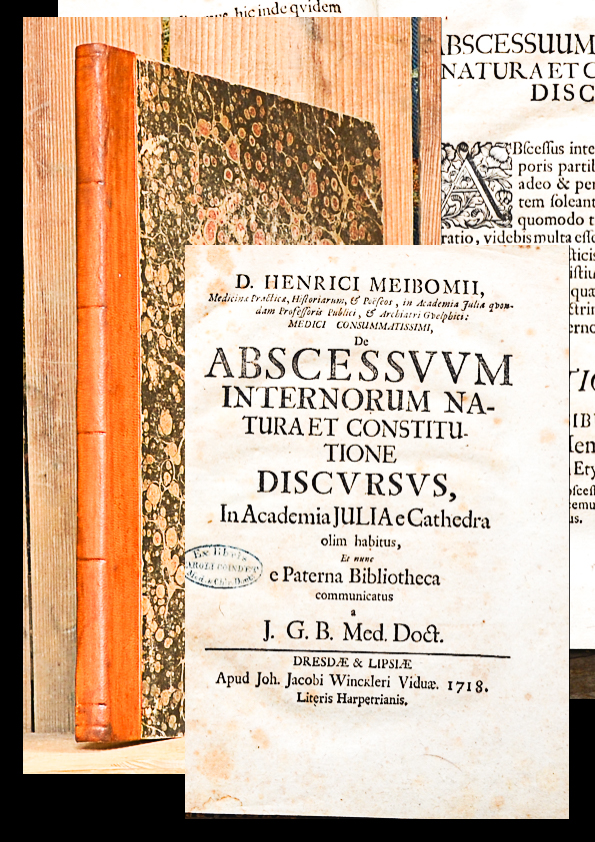 hic inde qvidem
ABSCESSUUM
NATURA ET C
DISC
ABscessus inte
poris partib
adeo & per
tem soleant
quomodo t
ratio, videbis multa esse
D. HENRICI MEIBOMII,
Medicinæ Practicæ, Historiarum, & Poëseos, in Academia Julia qvon-
dam Professoris Publici, & Archiatri Gvelphici:
MEDICI CONSUMMATISSIMI,
De
ABSCESSVVM
INTERNORUM NA-
TURA ET CONSTITU-
TIONE
DISCVRSVS,
In Academia JULIA e Cathedra
olim habitus,
Et nunc
e Paterna Bibliotheca
communicatus
a
J. G. B. Med. Doct.
DRESDÆ & LIPSIÆ
Apud Joh. Jacobi Winckleri Viduæ. 1718.
Literis Harpetrianis.
Ex Libris